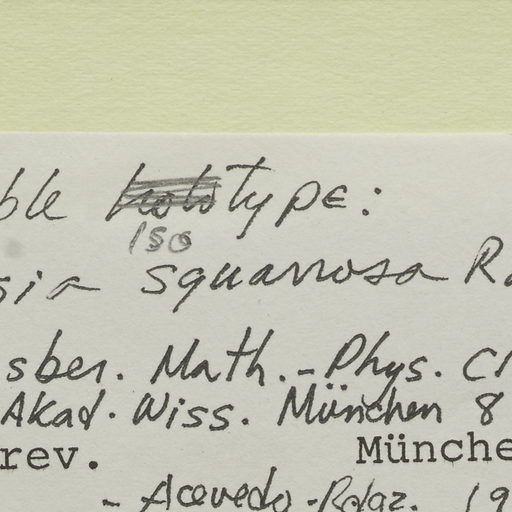 ble holotype:
iso
sia squarrosa Ra
sber. Math.-Phys. Cl
Akad. Wiss. München 8
rev. Münche
- Acevedo-Rdgz. 19